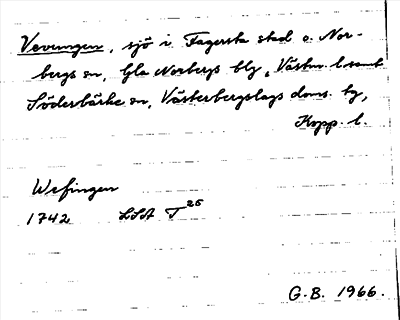 Vevungen, sjö i Fagersta stad o. Nor-
bergs sn, Gla Norbergs blg, Västm. l. samt
Söderbärke sn, Västerbergslags doms. hg,
Kopp. l.
Wefingen
1742 LSA T 26
G.B. 1966.